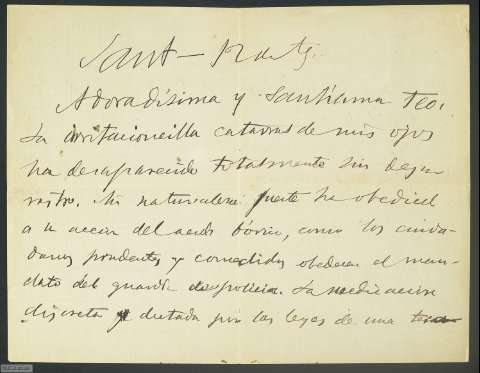 Sant— 12 de
Adoradísima y Santísima Teo:
La irritacioncilla catarral de mis ojos
ha desaparecido totalmente sin dejar
rastro. Mi naturaleza fuerte ha obedecid
a la accion del acido bórico, como los ciuda-
danos prudentes y comedidos obedecen el man-
dato del guardia de policia. La medicacion
discreta y dictada por las leyes de una